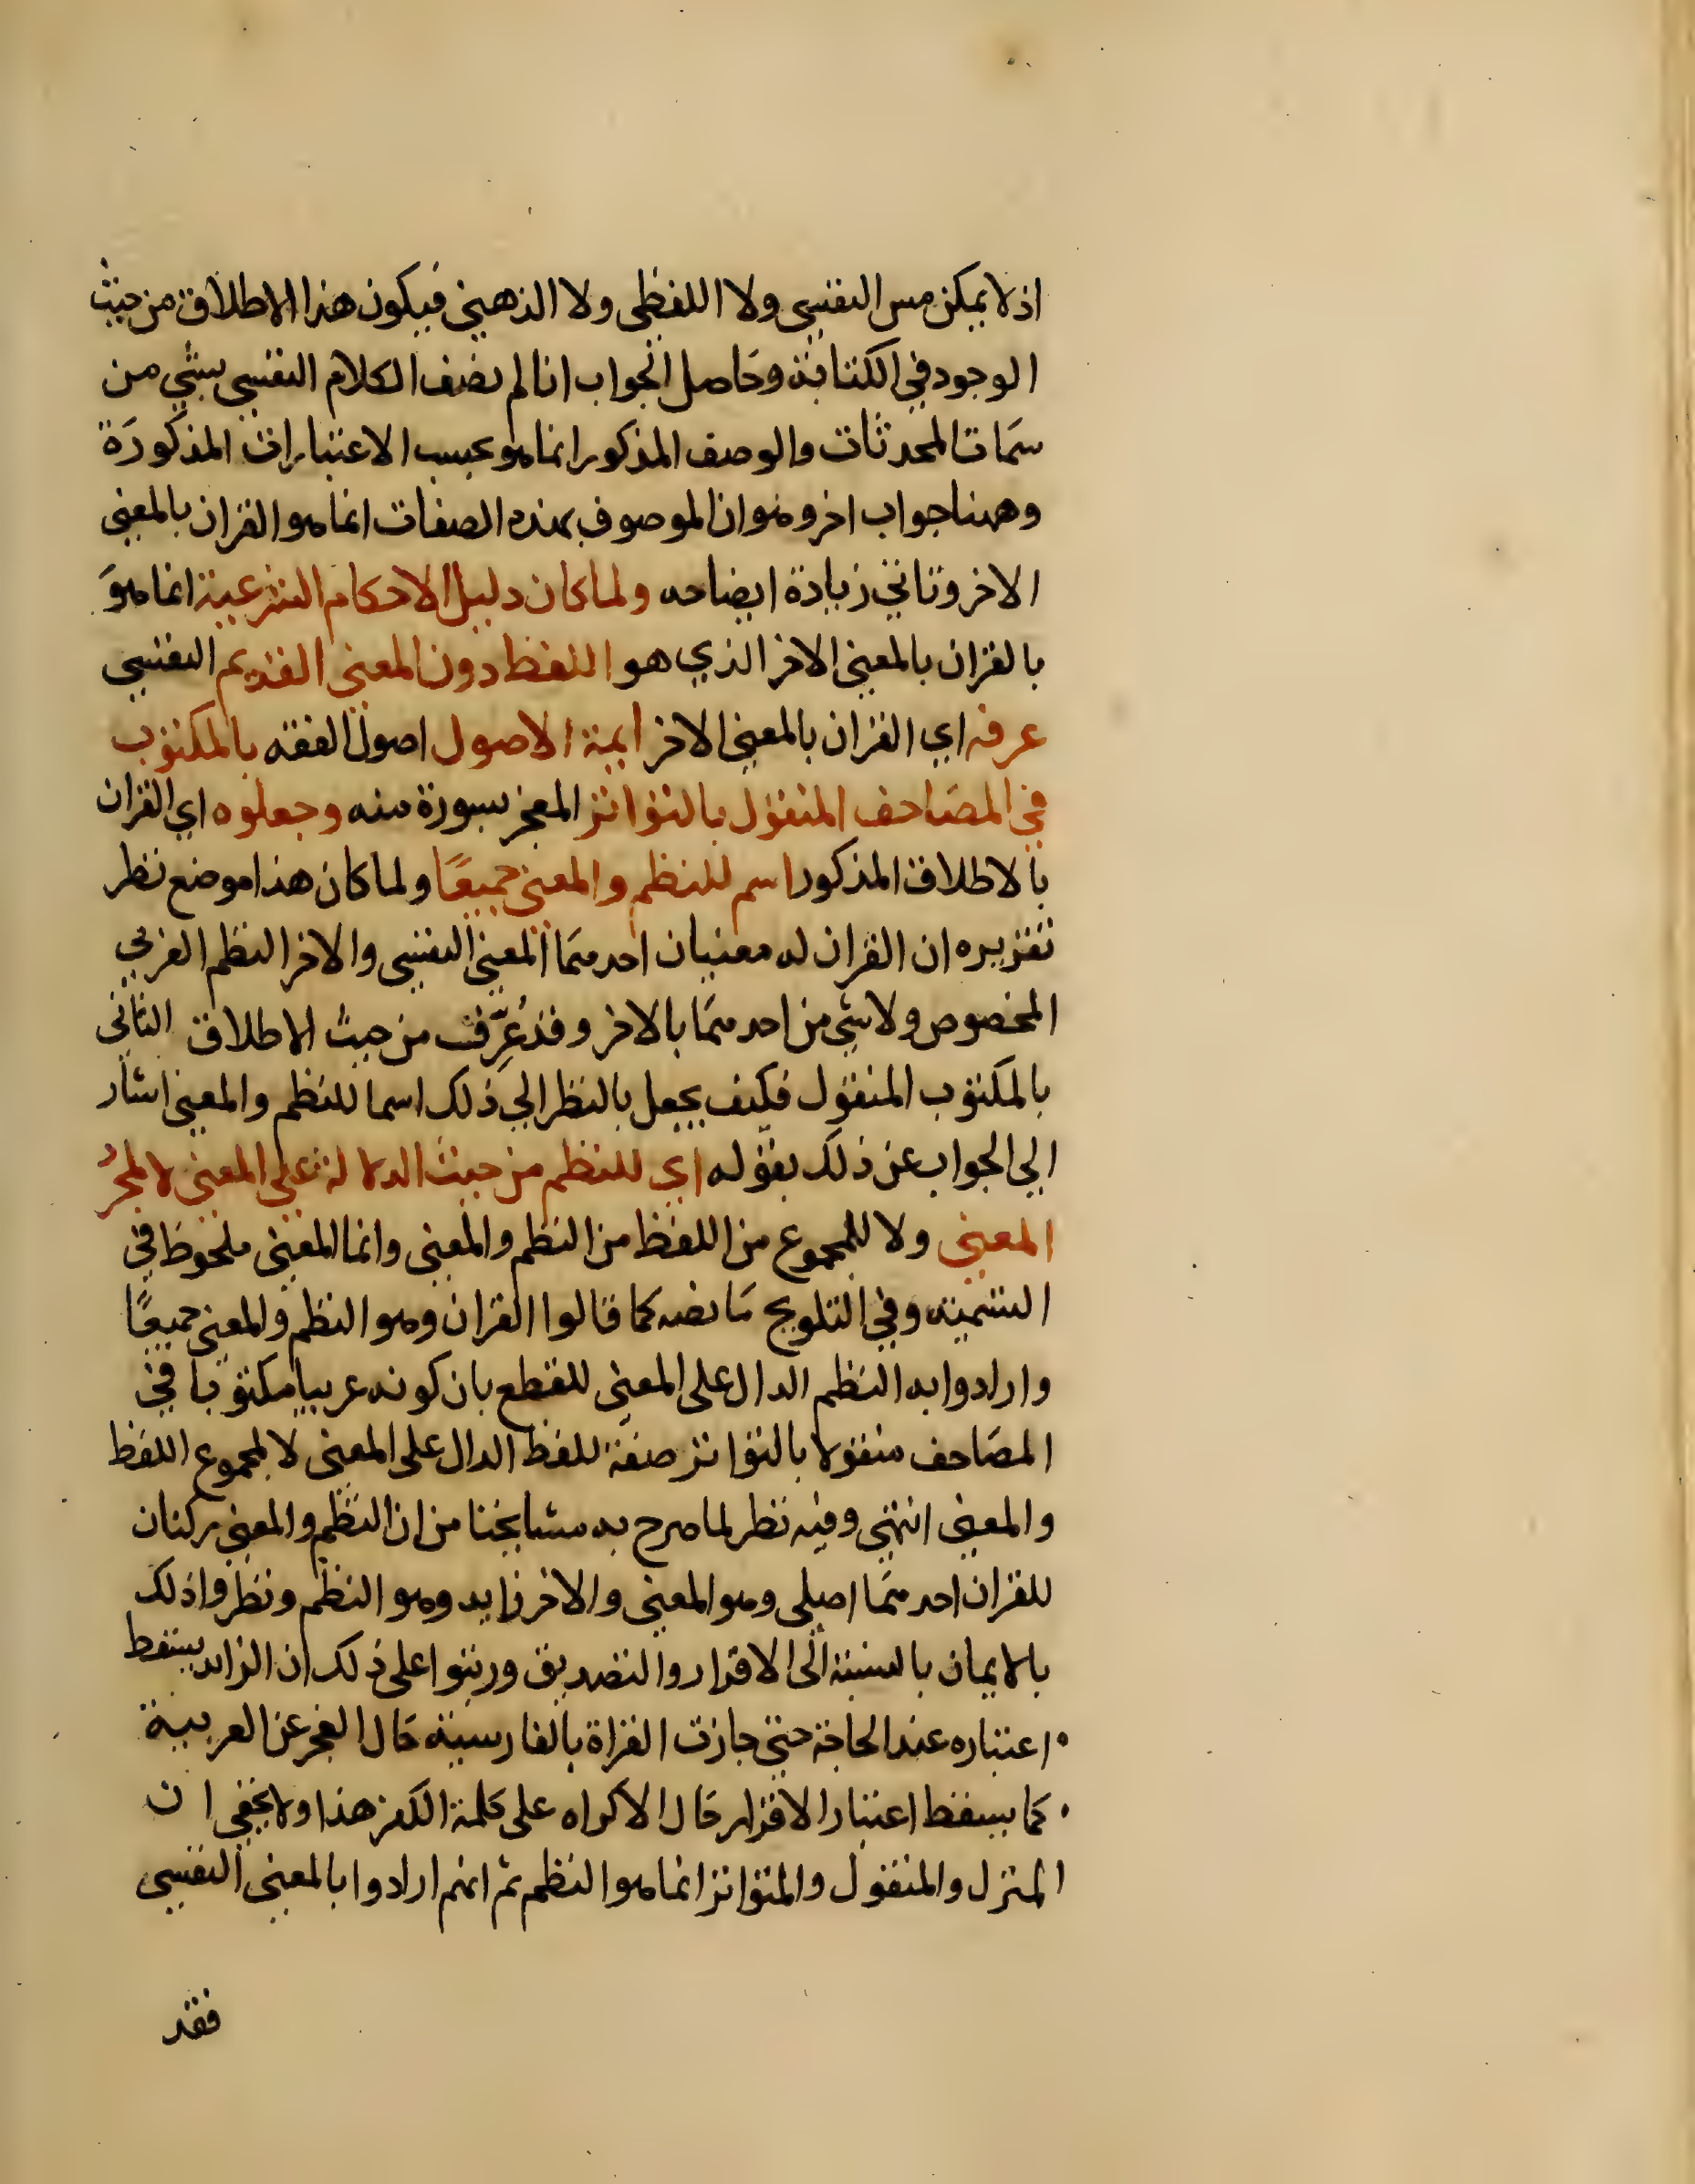 اذ لا يمكن مس النفسي ولا اللفظي ولا الذهني فيكون هذا الاطلاق من حيث
الوجود في الكتابة وحاصل الجواب انا لم نصف الكلام النفسي بشي من
سمات المحدثات والوصف المذكور انما هو بحسب الاعتبارات المذكورة
وههنا جواب اخر وهو ان الموصوف بهذه الصفات انما هو القران بالمعني
الاخر وتاتي زيادة ايضاحه ولما كان دليل الاحكام الشرعية انما هو
بالقران بالمعني الاخر الذي هو اللفظ دون المعني القديم النفسي
عرفه اي القران بالمعني الاخر ايمة الاصول اصول الفقه بالمكتوب
في المصاحف المنقول بالتواتر المعجز بسورة منه وجعلوه اي القران
بالاطلاق المذكور اسم للنظم والمعني جميعًا ولما كان هذا موضع نظر
تقريره ان القران له معنيان احدهما المعني النفسي والاخر النظم العربي
المخصوص ولا شي من احدهما بالاخر وقد عُرِّفت من حيث الاطلاق الثاني
بالمكتوب المنقول فكيف يجعل بالنظر الي ذلك اسما للنظم والمعني اشار
الي الجواب عن ذلك بقوله اي للنظم من حيث الدلالة علي المعني لا لمجرد
المعني ولا للمجموع من اللفظ من النظم والمعني وانما المعني ملحوظ في
التسمية وفي التلويح ما نصه كما قالوا القران وهو النظم والمعني جميعًا
وارادوا به النظم الدال على المعني للقطع بان كونه عربيا مكتوبا في
المصاحف منقولا بالتواتر صفة للفظ الدال على المعني لا لمجموع اللفظ
والمعني انتهي وفيه نظر لما صرح به مشايخنا من ان النظم والمعني ركنان
للقران احدهما اصلي وهو المعني والاخر زايد وهو النظم ونظروا ذلك
بالايمان بالنسبة الى الاقرار والتصديق ورتبوا على ذلك ان الزايد يسقط
اعتباره عند الحاجة حتي جازت القراة بالفارسية حال العجز عن العربية
كما يسقط اعتبار الاقرار حال الاكراه على كلمة الكفر هذا ولا يخفي ان
المنزل والمنقول والمتواتر انما هو النظم ثم انهم ارادوا بالمعني النفسي
فقد